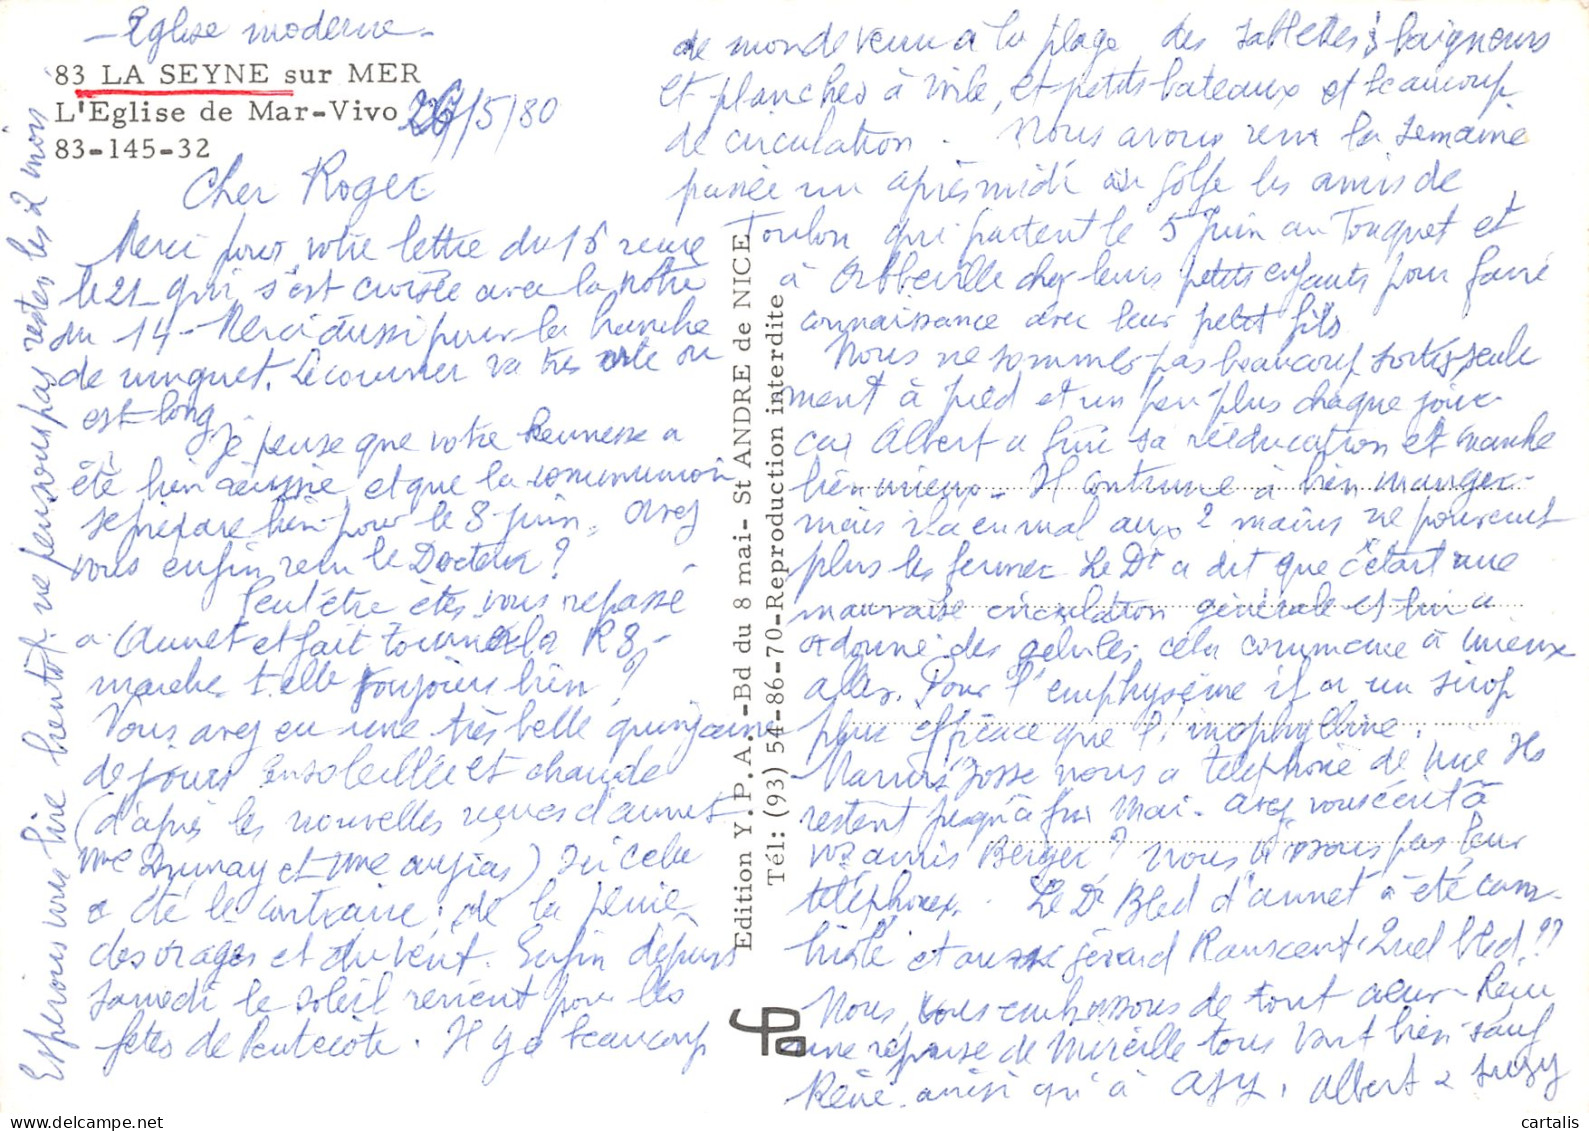 - Eglise moderne -
83 LA SEYNE sur MER
L'Eglise de Mar-Vivo 26/5/80
83-145-32
Cher Roger
Merci pour votre lettre du 15 reçue
le 21 qui s'est croisée avec la notre
du 14 - Merci aussi pour la branche
de muguet. Le courrier va très vite ou
est long
je pense que votre Kermesse a
été bien réussie, et que la communion
se prépare bien pour le 8 juin. Avez
vous enfin revu le Docteur ?
Peut être êtes vous repassé
a Annet et fait tourner la R8,
marche t elle toujours bien ?
Vous avez eu une très belle quinzaine
de jours ensoleillée et chaude
(d'après les nouvelles reçues d'annet
Mme Dzunay et Mme augias) Ici cela
a été le contraire : de la pluie
des orages et du vent. Enfin depuis
samedi le soleil revient pour les
fêtes de Pentecôte. Il y a beaucoup
de monde venu à la plage des Sablettes : baigneurs
et planches à voile, et petits bateaux et beaucoup
de circulation. Nous avons revu la semaine
passée un après midi au golfe les amis de
Toulon qui partent le 5 juin au Touquet et
à Abbeville chez leurs petits enfants pour faire
connaissance avec leur petit fils
Nous ne sommes pas beaucoup sortis, seule
ment à pied et un peu plus chaque jour
car Albert a fini sa rééducation et marche
bien mieux. Il continue à bien manger
mais il a eu mal aux 2 mains ne pouvant
plus les fermer. Le Dr a dit que c'était une
mauvaise circulation générale et lui a
ordonné des gelules, cela commence à mieux
aller. Pour l'emphysème il a un sirop
plus efficace que l'inophylline.
Marius Josse nous a téléphoné de Nice Ils
restent jusqu'à fin Mai. avez vous écrit à
vos amis Berger ? Nous n'osons pas leur
téléphoner. Le Dr Bled d'annet a été cam-
briolé et aussi gérard Ranscent. Quel bled !!
Nous vous embrassons de tout cœur - Reçu
une réponse de Mireille tous vont bien sauf
Réné. ainsi qu'à Azy. Albert & Suzy
Esperons vous lire bientôt. ne pensons pas rester les 2 mois
Edition Y.P.A. - Bd du 8 mai - St ANDRE de NICE
Tél: (93) 54-86-70 - Reproduction interdite
cartalis